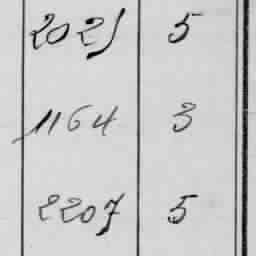 2021 5
1164 3
2207 5